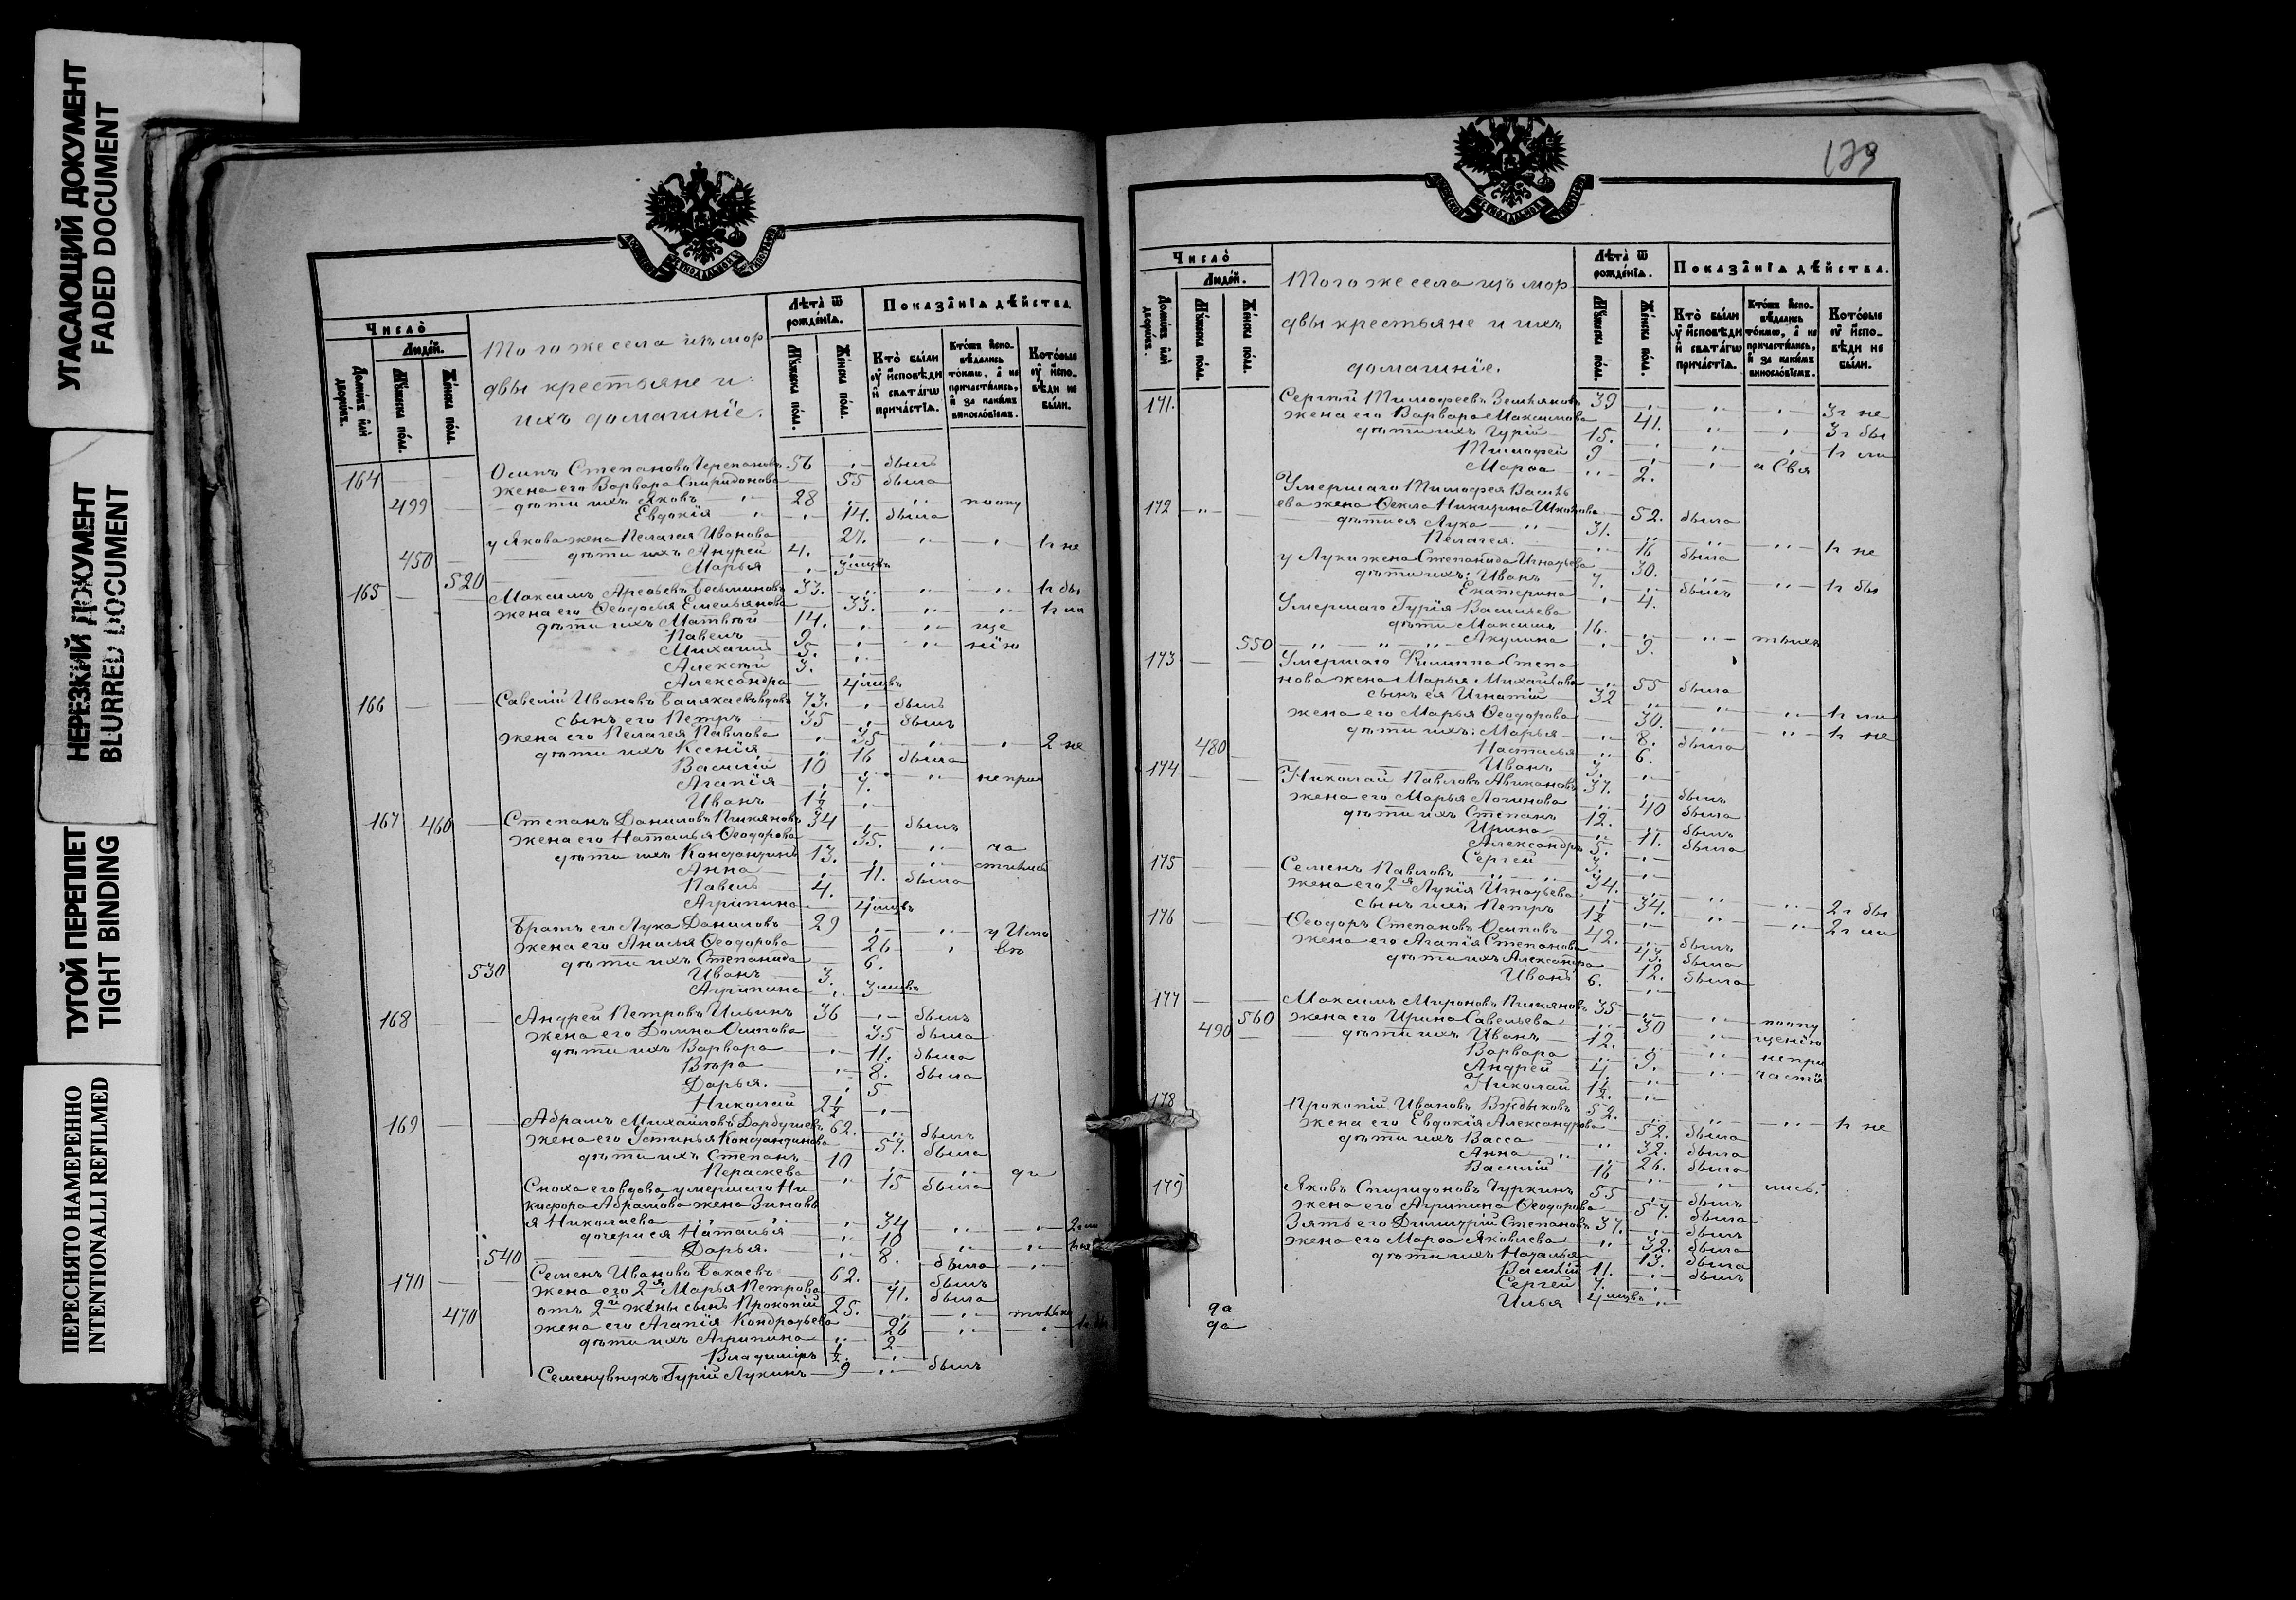 УГАСАЮЩИЙ ДОКУМЕНТ
FADED DOCUMENT
НЕРЕЗКИЙ ДОКУМЕНТ
BLURRED DOCUMENT
ТУГОЙ ПЕРЕПЛЕТ
TIGHT BINDING
ПЕРЕСНЯТО НАМЕРЕННО
INTENTIONALLI REFILMED
Число̀
Людей.
Домовъ или дворовъ.
Мꙋжеска пола.
Женска пола.
Того же села изъ мор
двы крестьяне и
ихъ домашніе.
Лѣта̀ ѿ рожденїѧ.
Мꙋжеска пола.
Женска пола.
Показанїѧ дѣйства.
Кто̀ были ᲂу҆ исповѣди и свѧтагѡ причастїѧ.
Ктоже исповѣдались токмѡ, а не причастились, и за какимъ винословїемъ.
Которые ᲂу҆ исповѣди не были.
164 Осипъ Степановъ Черепановъ 56 „ былъ
жена его Варвара Спиридонова 55 была
499 дѣти ихъ Яковъ 28 „ „ по опу
Евдокія „ 14. была
у Якова жена Пелагея Иванова 27. „ „ 1 г не
450 дѣти ихъ Андрей 4.
520 Марья „ 3 мцвъ
165 Максимъ Арсеьевъ 33. „ „ „ 1 г бы
жена его Ѳеодосья Емельянова 33. „ „ 1 г ли
дѣти ихъ Матвѣй 14. „ „ ще
Павелъ 9 „ „ нію
Михаилъ 5. „
Алексѣй 3.
Александра 4 мцвъ
166 Савелій Ивановъ вдовъ 73. „ былъ
сынъ его Петръ 35 „ былъ
жена его Пелагея Павлова „ 35 „ „ 2 не
дѣти ихъ Ксенія „ 16 была
Василій 10 „ „ не при
Агапія „ 7.
Иванъ 1½ „
167 460 Степанъ Даниловъ Пикяновъ 34 „ былъ
жена его Наталья Ѳеодорова 35. „ ча
дѣти ихъ Константинъ 13. „ „ стились
Анна „ 11. была
Павелъ 4. „
Агрипина 4 мцвъ
Братъ его Лука Даниловъ 29 „ „ у Испо
жена его Анисья Ѳеодорова 26 „ вѣ
дѣти ихъ Степанида 6.
530 Иванъ 3.
Агрипина „ 3 мцвъ
168 Андрей Петровъ Ильинъ 36 „ былъ
жена его Домна Осипова 35 была
дѣти ихъ Варвара „ 11. была
Вѣра „ 8. была
Дарья. „ 5
Николай 2½ „
169 Абрамъ Михайловъ 62. „ былъ
жена его Устинья Константинова 57. была
дѣти ихъ Степанъ 10 „ „ ди
Пераскева „ 15 была
Сноха его вдова умершаго Ни
кифора Абрамова жена Зиновь
я Николаева „ 34 „ „
дочери ея Наталья „ 10 „ „
540 Дарья. „ 8. была „
170 Семенъ Ивановъ Бакаевъ 62. „ былъ
жена его 2я Марья Петрова 41. была
отъ 2й жены сынъ Прокопій 25. „ „ только
470 жена его Агапія Кондратьева 26 „ „
дѣти ихъ Агрипина „ 2
Владиміръ ½ „
Семену внукъ Гурій Лукинъ 9 „ былъ
179
Число̀
Людей.
Домовъ или дворовъ.
Мꙋжеска пола.
Женска пола.
Того же села изъ мор
двы крестьяне и ихъ
домашніе.
Лѣта̀ ѿ рожденїѧ.
Мꙋжеска пола.
Женска пола.
Показанїѧ дѣйства.
Кто̀ были ᲂу҆ исповѣди и свѧтагѡ причастїѧ.
Ктоже исповѣдались токмѡ, а не причастились, и за какимъ винословїемъ.
Которые ᲂу҆ исповѣди не были.
171. Сергѣй Тимофеевъ 39 „ „ „ 3 г не
жена его Варвара Максимова 41. „ „ 3 г бы
дѣти ихъ Гурій 15. „ „ „ 1 г ли
Тимофей 9 „ „ а Свя
Марѳа „ 2.
Умершаго Тимофея Василь
172 „ ева жена Ѳекла Никитина 52. была
дѣти ея Лука „ 31. „ „ „ 1 г не
Пелагея. „ 16 была
у Луки жена Степанида Игнатьева 30. „ „ 1 г бы
дѣти ихъ: Иванъ 7. „ былъ
Екатерина „ 4.
Умершаго Гурія Васильева
дѣти Максимъ 16. „ „ тыихъ
550 „ „ „ Акулина „ 9.
173 Умершаго Филиппа Степа
нова жена Марья Михайлова „ 55 была
сынъ ея Игнатій 32 „ „ „ 1 г ли
жена его Марья Ѳеодорова 30. „ „ 1 г не
дѣти ихъ: Марья „ 8. была
480 Настасья „ 6.
Иванъ 3. „
174 Николай Павловъ 37. „ былъ
жена его Марья Логинова „ 40 была
дѣти ихъ Степанъ 12. „ былъ
Ирина „ 11. была
Александръ 5. „
Сергей 3. „
175 Семенъ Павловъ „ „ 34. „ „ „ 2 г бы
жена его 2я Лукія Игнатьева 34. „ „ 2 г ли
сынъ ихъ Петръ 1½ „
176 Ѳеодоръ Степановъ Осиповъ 42. „ былъ
жена его Агапія Степанова 43. была
дѣти ихъ Александра 12. была
Иванъ 6. „
177 Максимъ Мироновъ Пикяновъ 35 „ „ по опу
560 жена его Ирина Савельева „ 30 „ щенію
490 дѣти ихъ Иванъ 12. „ „ не при
Варвара „ 9. „ части
Андрей 4. „
Николай 1½ „
178 Прокопій Ивановъ 52. „ „ „ 1 г не
жена его Евдокія Александрова 52. была
дѣти ихъ Васса „ 32. была
Анна „ 26. была
Василій 16 „ „ лись.
179 Яковъ Спиридоновъ Чуркинъ 55 „ былъ
жена его Агрипина Ѳеодорова 57. была
Зять его Димитрій Степановъ 37. „ былъ
жена его Марѳа Яковлева „ 32. была
дѣти ихъ Наталья „ 13. была
Василій 11. „ былъ
Сергей 7. „
Илья 4 мцвъ „